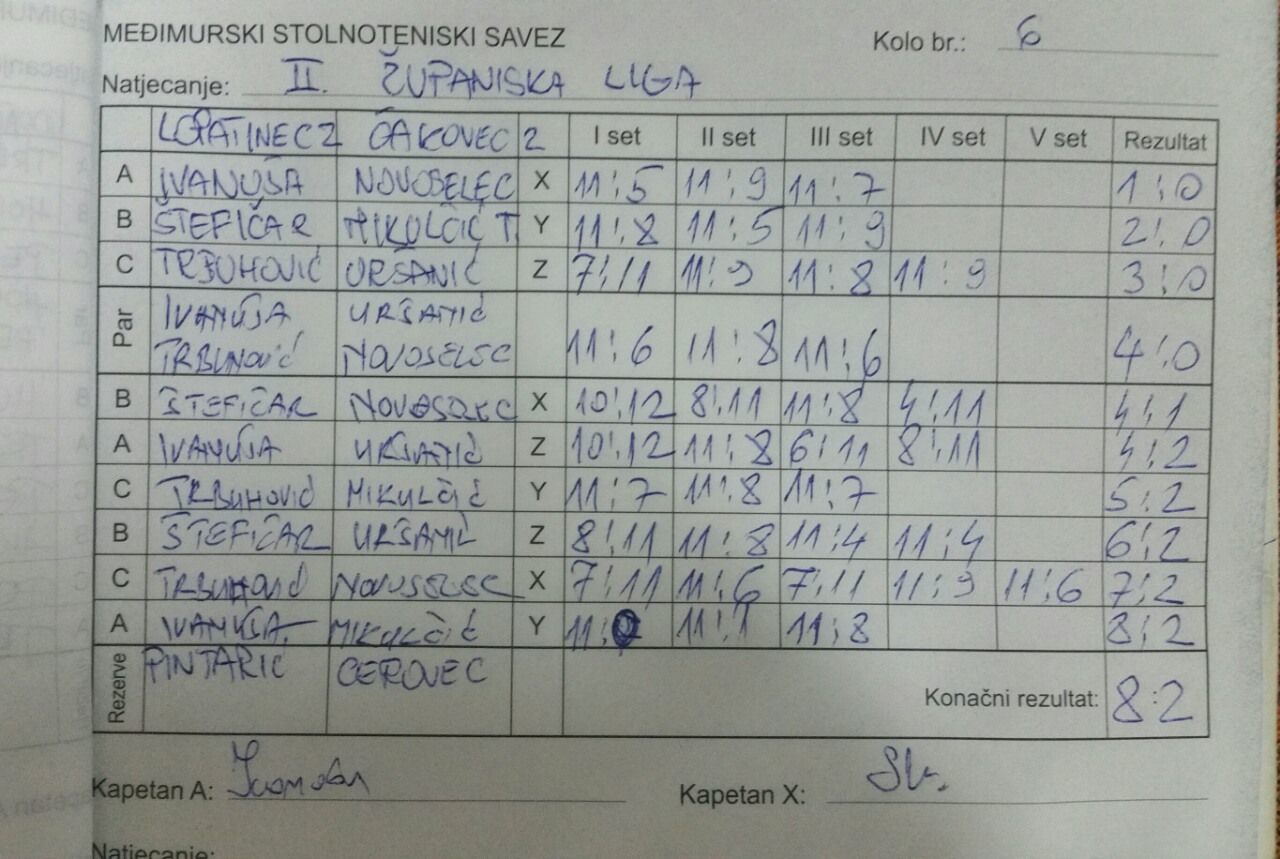 MEĐIMURSKI STOLNOTENISKI SAVEZ Kolo br.: 6
Natjecanje: II. ŽUPANISKA LIGA
LOPATINEC 2 ČAKOVEC 2 I set II set III set IV set V set Rezultat
A IVANUŠA NOVOSELEC X 11:5 11:9 11:7 1:0
B ŠTEFIČAR MIKULČIĆ T. Y 11:8 11:5 11:9 2:0
C TRBUHOVIĆ URŠANIĆ Z 7:11 11:9 11:8 11:9 3:0
Par IVANUŠA URŠANIĆ
TRBUHOVIĆ NOVOSELEC 11:6 11:8 11:6 4:0
B ŠTEFIČAR NOVOSELEC X 10:12 8:11 11:8 4:11 4:1
A IVANUŠA URŠANIĆ Z 10:12 11:8 6:11 8:11 4:2
C TRBUHOVIĆ MIKULČIĆ Y 11:7 11:8 11:7 5:2
B ŠTEFIČAR URŠANIĆ Z 8:11 11:8 11:4 11:4 6:2
C TRBUHOVIĆ NOVOSELEC X 7:11 11:6 7:11 11:9 11:6 7:2
A IVANUŠA MIKULČIĆ Y 11:1 11:8 8:2
Rezerve PINTARIĆ CEROVEC Konačni rezultat: 8:2
Kapetan A: Kapetan X:
Natjecanje: